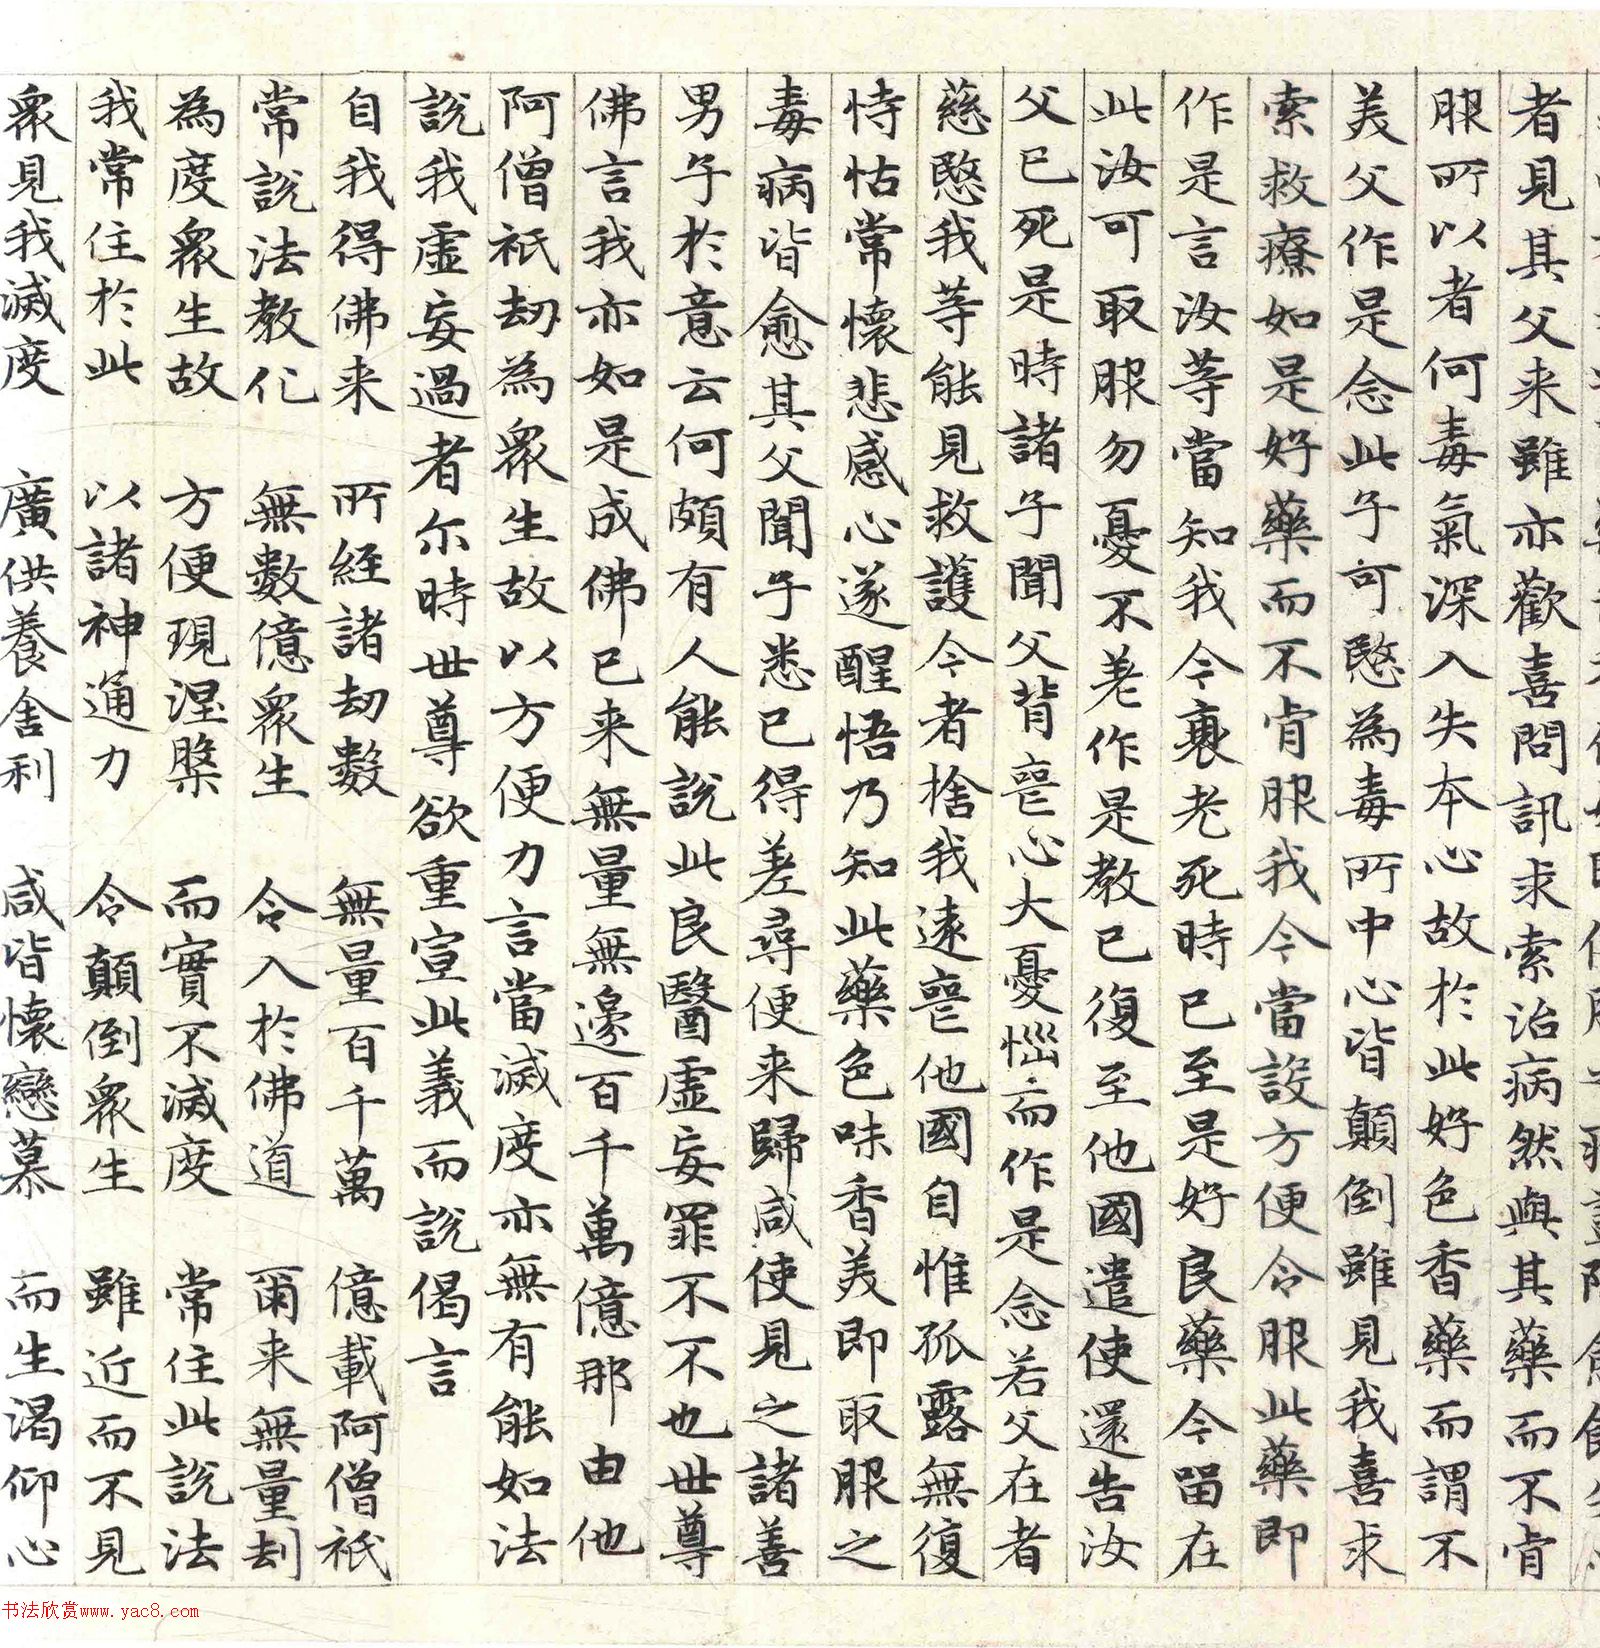 者見其父来雖亦歡喜問訊求索治病然與其藥而不肯
服所以者何毒氣深入失本心故於此好色香藥而謂不
美父作是念此子可愍為毒所中心皆顛倒雖見我喜求
索救療如是好藥而不肯服我今當設方便令服此藥即
作是言汝等當知我今衰老死時已至是好良藥今留在
此汝可取服勿憂不差作是教已復至他國遣使還告汝
父已死是時諸子聞父背喪心大憂惱而作是念若父在者
慈愍我等能見救護今者捨我遠喪他國自惟孤露無復
恃怙常懷悲感心遂醒悟乃知此藥色味香美即取服之
毒病皆愈其父聞子悉已得差尋便来歸咸使見之諸善
男子於意云何頗有人能說此良醫虛妄罪不不也世尊
佛言我亦如是成佛已来無量無邊百千萬億那由他
阿僧祇劫為衆生故以方便力言當滅度亦無有能如法
說我虛妄過者尓時世尊欲重宣此義而說偈言
自我得佛来 所經諸劫數 無量百千萬 億載阿僧祇
常說法教化 無數億衆生 令入於佛道 爾来無量劫
為度衆生故 方便現涅槃 而實不滅度 常住此說法
我常住於此 以諸神通力 令顛倒衆生 雖近而不見
衆見我滅度 廣供養舍利 咸皆懷戀慕 而生渴仰心
书法欣赏www.yac8.com